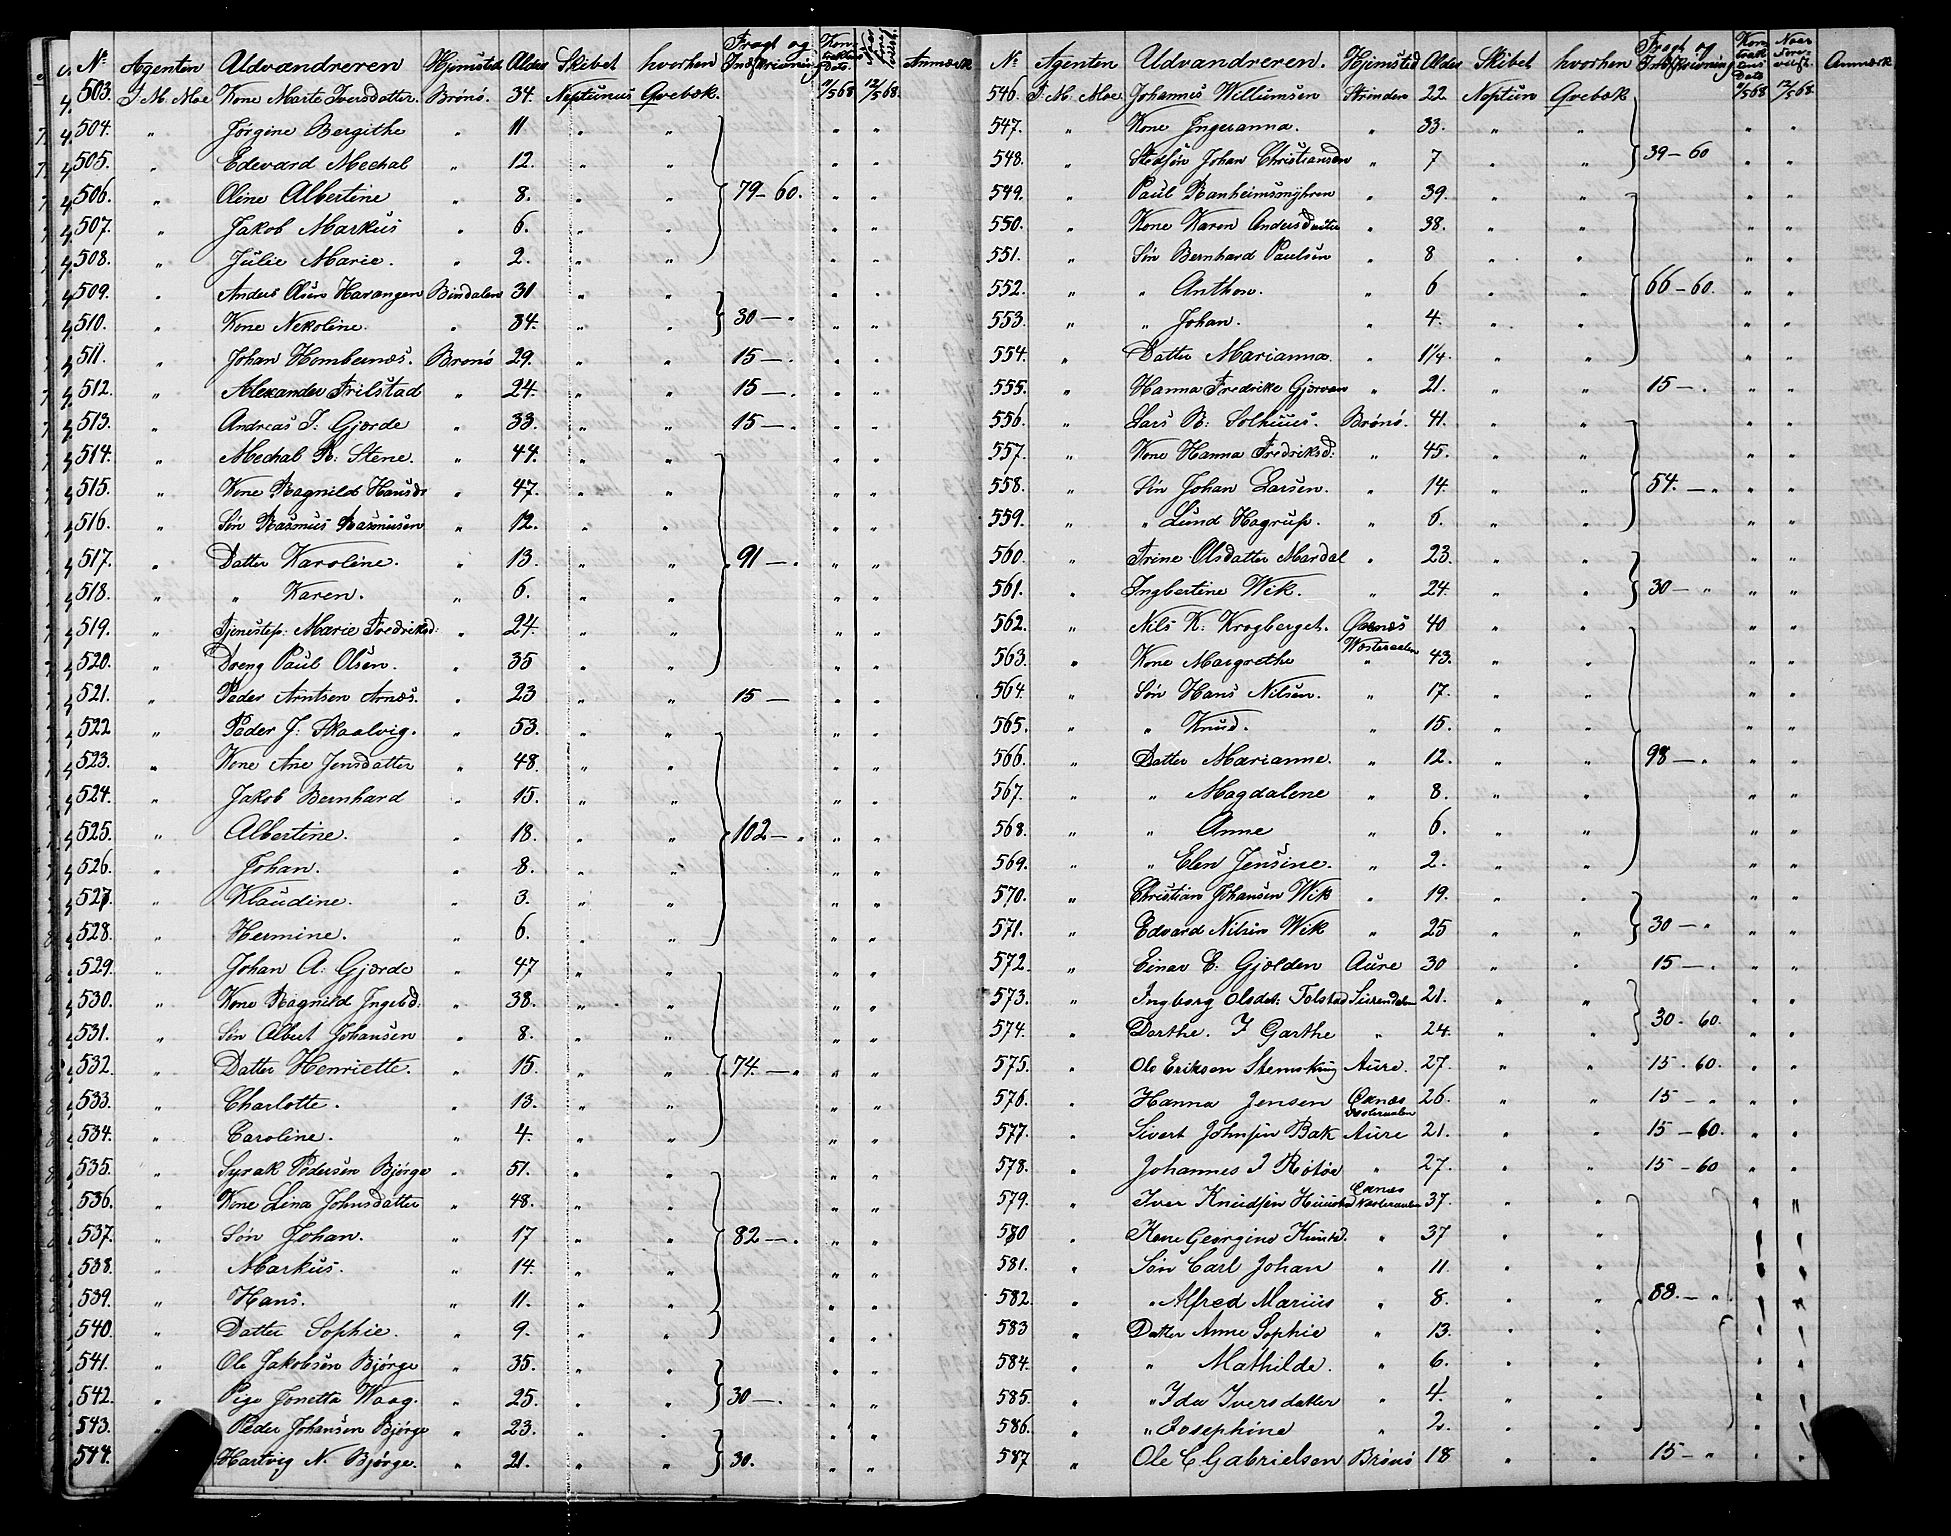 No Agenten Udvandreren Hjemsted Alder Skibet hvorhen Fragt og Indskrivning Kontraktens Date Anmærk
503. J. M. Moe Kone Marte Iversdatter. Brønø. 34. Neptunus Qvebæk. 9/5 68 12/5 68.
504. " Jørgine Bergithe " 11 " " " "
505. " Edevard Mechal " 12. " " " "
506. " Oline Albertine " 8. " " 79-60. " "
507. " Jakob Markus " 6. " " " "
508. " Julie Marie. " 2. " " " "
509. " Anders Olsen Harangen Bindalen 31 " " " "
510. " Kone Nekoline. " 34. " " 30 — " " "
511. " Johan Hombernæs. Brønø 29. " " 15 — . " "
512. " Alexander Trilstad " 24. " " 15 — . " "
513. " Andreas J. Gjørde " 33. " " 15 — " " "
514. " Mechal R. Stene. " 44. " " " "
515. " Kone Ragnild Hansdr " 47. " " " "
516. " Søn Rasmus Rasmusen " 12. " " " "
517. " Datter Karoline. " 13. " " 91 — . " "
518. " " Karen. " 6. " " " "
519. " Tjenestep. Marie Fredriksd. " 24. " " " "
520. " Dreng Paul Olsen. " 35 " " " "
521. " Peder Arntsen Arnæs. " 23 " " 15 — " "
522 " Peder J. Skaalvig. " 53. " " " "
523. " Kone Ane Jensdatter " 48. " " " "
524. " Jakob Bernhard " 15. " " " "
525. " Albertine. " 18. " " 102 — " " "
526. " Johan. " 8. " " " "
527. " Klaudine. " 3. " " " "
528. " Hermine. " 6. " " " "
529. " Johan A. Gjørde " 47 " " " "
530. " Kone Ragnild Ingebd. " 38. " " " "
531. " Søn Albert Johansen " 8. " " " "
532. " Datter Henriette. " 15. " " 74. — " " "
533. " Charlotte. " 13. " " " "
534. " Caroline. " 4. " " " "
535. " Syrak Pedersen Bjørge " 51. " " " "
536. " Kone Lina Johnsdatter " 48. " " " "
537. " Søn Johan. " 17 " " 82 — . " "
538. " Markus. " 14. " " " "
539. " Hans. " 11. " " " "
540. " Datter Sophie. " 9. " " " "
541. " Ole Jakobsen Bjørge " 35. " " " "
542. " Pige Jonetta Waag. " 25. " " 30 — . " "
543. " Peder Johansen Bjørge " 23. " " " "
544. Hartvig N. Bjørge. " 21. " " 30. " "
No Agenten Udvandreren. Hjemsted Alder Skibet hvorhen Fragt og Indskrivning Kontraktens Date Anmærk
546. J. M. Moe Johannes Willumsen Strinden 22 Neptun Qvebæk 9/5 68 12/5 68.
547. " Kone Ingeranna. " 33. " " " "
548. " Stedsøn Johan Christiansen " 7 " " 39 — 60 " "
549. " Paul Ranheimsmyhren " 39. " " " "
550. " Kone Karen Andersdatter " 38. " " " "
551. " Søn Bernhard Paulsen " 8 " " " "
552. " " Anthon. " 6 " " 66 — 60. " "
553. " " Johan. " 4. " " " "
554. " Datter Marianna. " 1¼. " " " "
555. " Hanna Fredrike Gjørvan " 21. " " 15 — . " "
556. " Lars B. Solhuus. Brønø. 41. " " " "
557. " Kone Hanna Fredriksd. " 45. " " " "
558. " Søn Johan Larsen. " 14. " " 54. — " " "
559. " " Lund Hagrup. " 6. " " " "
560. " Trine Olsdatter Mardal " 23. " " " "
561. " Ingbertine Wik. " 24. " " 30 — " " "
562. " Nils K. Krogberget. Øxnæs Westeraalen 40 " " " "
563. " Kone Margrethe " 43. " " " "
564. " Søn Hans Nilsen. " 17. " " " "
565. " " Knud. " 15. " " " "
566. " Datter Marianne. " 12. " " 98 — " " "
567. " " Magdalene " 8. " " " "
568. " " Anne " 6. " " " "
569. " " Elen Jensine. " 2. " " " "
570. " Christian Johansen Wik " 19. " " " "
571. " Edvard Nilsen Wik " 25 " " 30 — " " "
572. " Einar E. Gjølden Aure 30 " " 15 — . " "
573. " Ingborg Olsdt. Tolstad Surendalen 21. " " " "
574. " Dorthe. I Garthe " 24. " " 30. 60. " "
575. " Ole Eriksen Aure. 27. " " 15 . 60. " "
576. " Hanna Jensen Øxnæs Vesteraalen 26. " " 15 — " " "
577. " Sivert Johnsen Bak Aure 21. " " 15 — 60. " "
578. " Johannes J Røtøe " 27. " " 15 — 60 " "
579. " Iver Knudsen Øxnæs Vesteraalen 37. " " " "
580 " Kone Georgine " 37 " " " "
581. " Søn Carl Johan " 11 " " " "
582. " " Alfred Marius " 8. " " 88. — " " "
583 " Datter Anne Sophie " 13. " " " "
584. " " Mathilde. " 6. " " " "
585. " " Ida Iversdatter " 4. " " " "
586. " " Josephine " 2. " " " "
587 " Ole C Gabrielsen Brønø 18 " " 15 — " " "